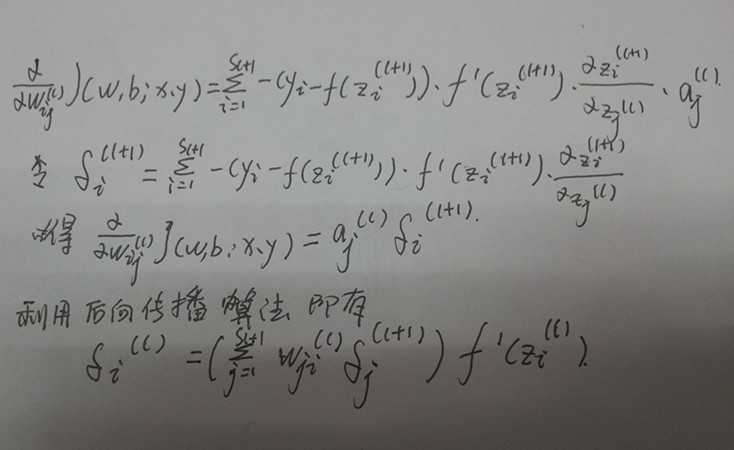 ∂/∂W_{ij}^{(l)} J(W,b;x,y) = \sum_{i=1}^{S_{l+1}} -(y_i - f(z_i^{(l+1)})) · f'(z_i^{(l+1)}) · ∂z_i^{(l+1)}/∂z_j^{(l)} · a_j^{(l)}.
令 δ_i^{(l+1)} = \sum_{i=1}^{S_{l+1}} -(y_i - f(z_i^{(l+1)})) · f'(z_i^{(l+1)}) · ∂z_i^{(l+1)}/∂z_j^{(l)}
得 ∂/∂W_{ij}^{(l)} J(W,b;x,y) = a_j^{(l)} δ_i^{(l+1)}.
利用后向传播算法 即有
δ_i^{(l)} = (\sum_{j=1}^{S_{l+1}} W_{ji}^{(l)} δ_j^{(l+1)}) f'(z_i^{(l)}).